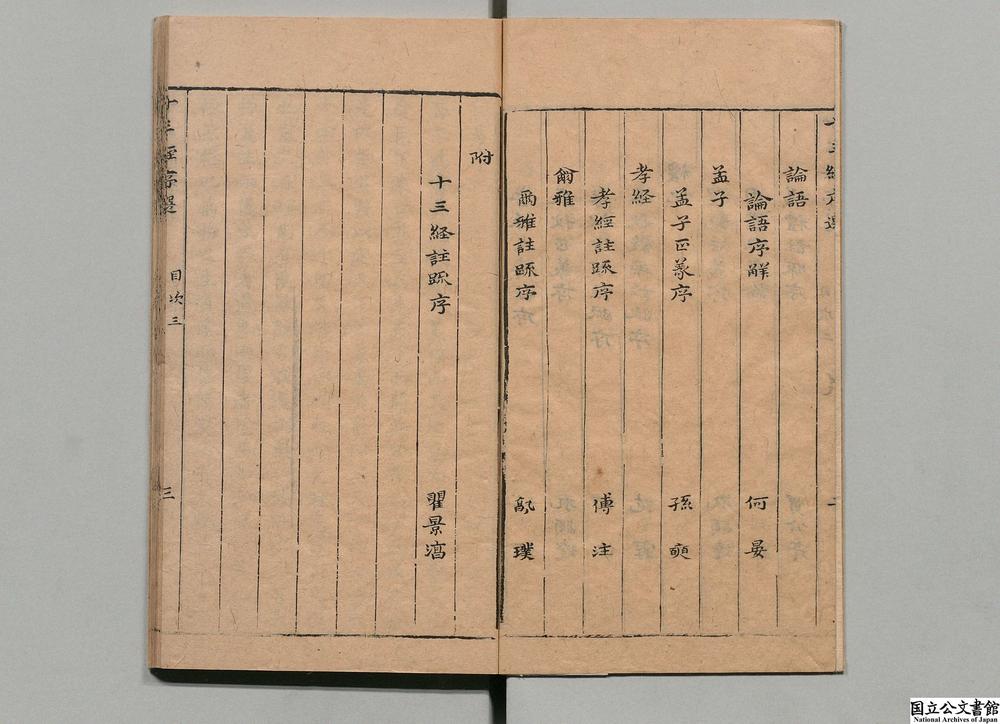 論語
論語序觧
何晏
孟子
孟子正義序
孫奭
孝経
孝經註䟽序
傅注
爾雅
爾雅註䟽序
郭璞
附
十三経註䟽序
瞿景淳
十三経序選
目次三
三
国立公文書館
National Archives of Japan